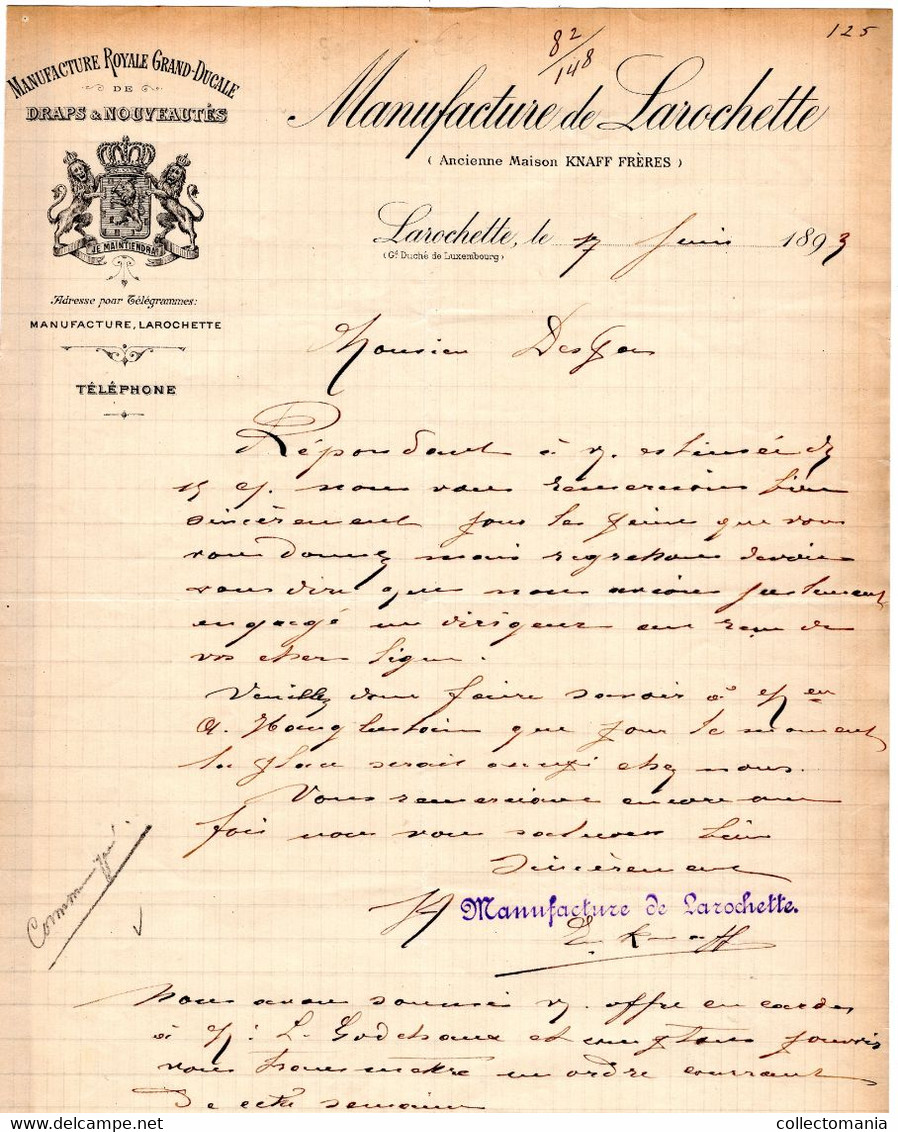 82/148
125
MANUFACTURE ROYALE GRAND-DUCALE
DE
DRAPS & NOUVEAUTÉS
JE MAINTIENDRAI
Adresse pour Télégrammes:
MANUFACTURE, LAROCHETTE
TÉLÉPHONE
Manufacture de Larochette
( Ancienne Maison KNAFF FRÈRES )
Larochette, le 17 Juin 1893
(Gd Duché de Luxembourg)
Monsieur
Répondant à v. estimée de
15 ct. nous vous remercions bien
sincèrement pour les peines que vous
vous donnez mais regrettons devoir
vous dire que nous avions justement
engagé un dirigeur en
vos chers lignes.
Veuillez donc faire savoir à
A. que pour le moment
la place serait occupé chez nous.
Vous remerciant encore une
fois nous vous saluons bien
sincèrement
Manufacture de Larochette.
E. Knaff
Communiqué
Nous avons soumis v. offre en cardes
à M: L. Godchaux et comptons pouvoir
vous transmettre un ordre courrant
de cette semaine
collectomania